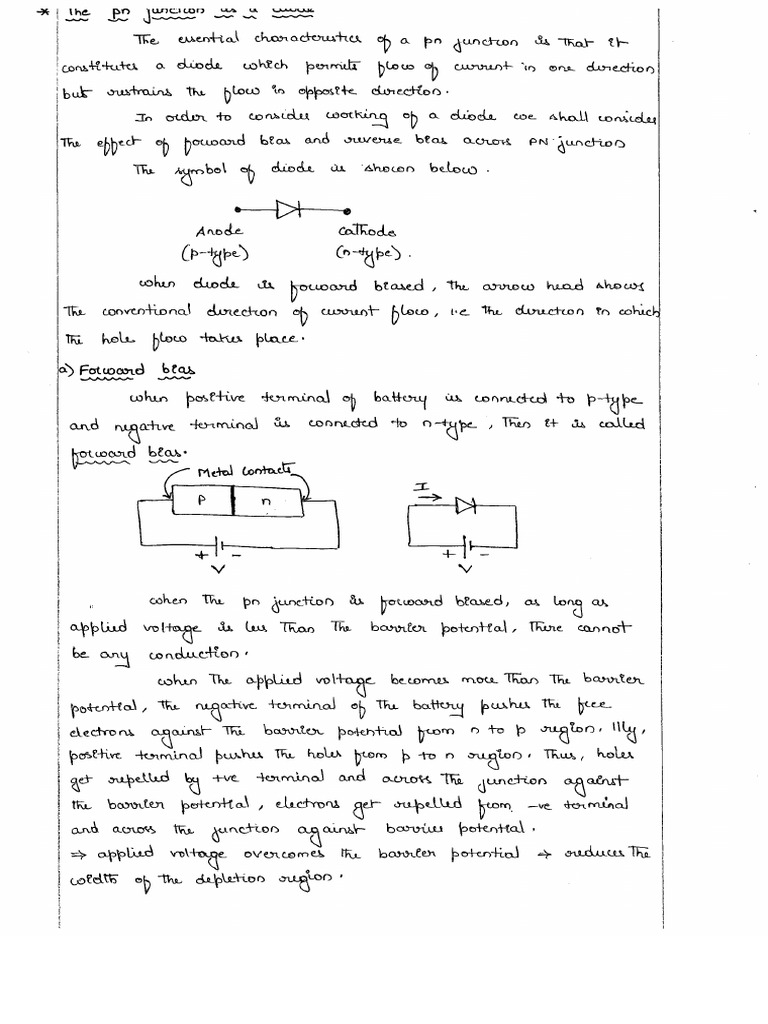 * The pn junction as a diode
The essential characteristics of a pn junction is that it
constitutes a diode which permits flow of current in one direction
but restrains the flow in opposite direction.
In order to consider working of a diode we shall consider
the effect of forward bias and reverse bias across PN junction
The symbol of diode is shown below.
Anode Cathode
(p-type) (n-type).
when diode is forward biased, the arrow head shows
the conventional direction of current flow, i.e the direction in which
the hole flow takes place.
a) Forward bias
when positive terminal of battery is connected to p-type
and negative terminal is connected to n-type, then it is called
forward bias.
Metal contacts
P n
I
+ - + -
V V
when the pn junction is forward biased, as long as
applied voltage is less than the barrier potential, there cannot
be any conduction.
when the applied voltage becomes more than the barrier
potential, the negative terminal of the battery pushes the free
electrons against the barrier potential from n to p region. llly,
positive terminal pushes the holes from p to n region. Thus, holes
get repelled by +ve terminal and across the junction against
the barrier potential, electrons get repelled from -ve terminal
and across the junction against barrier potential.
⇒ applied voltage overcomes the barrier potential → reduces the
width of the depletion region.